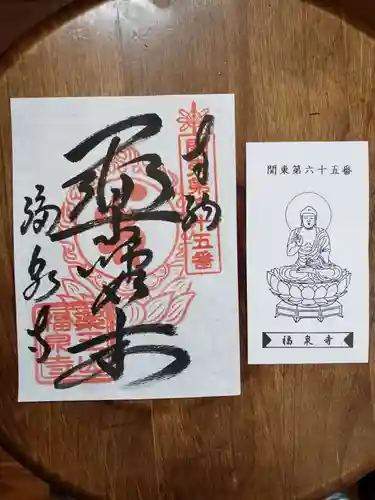 奉納
関東第六十五番
薬師如来
福泉寺
関東第六十五番
福泉寺